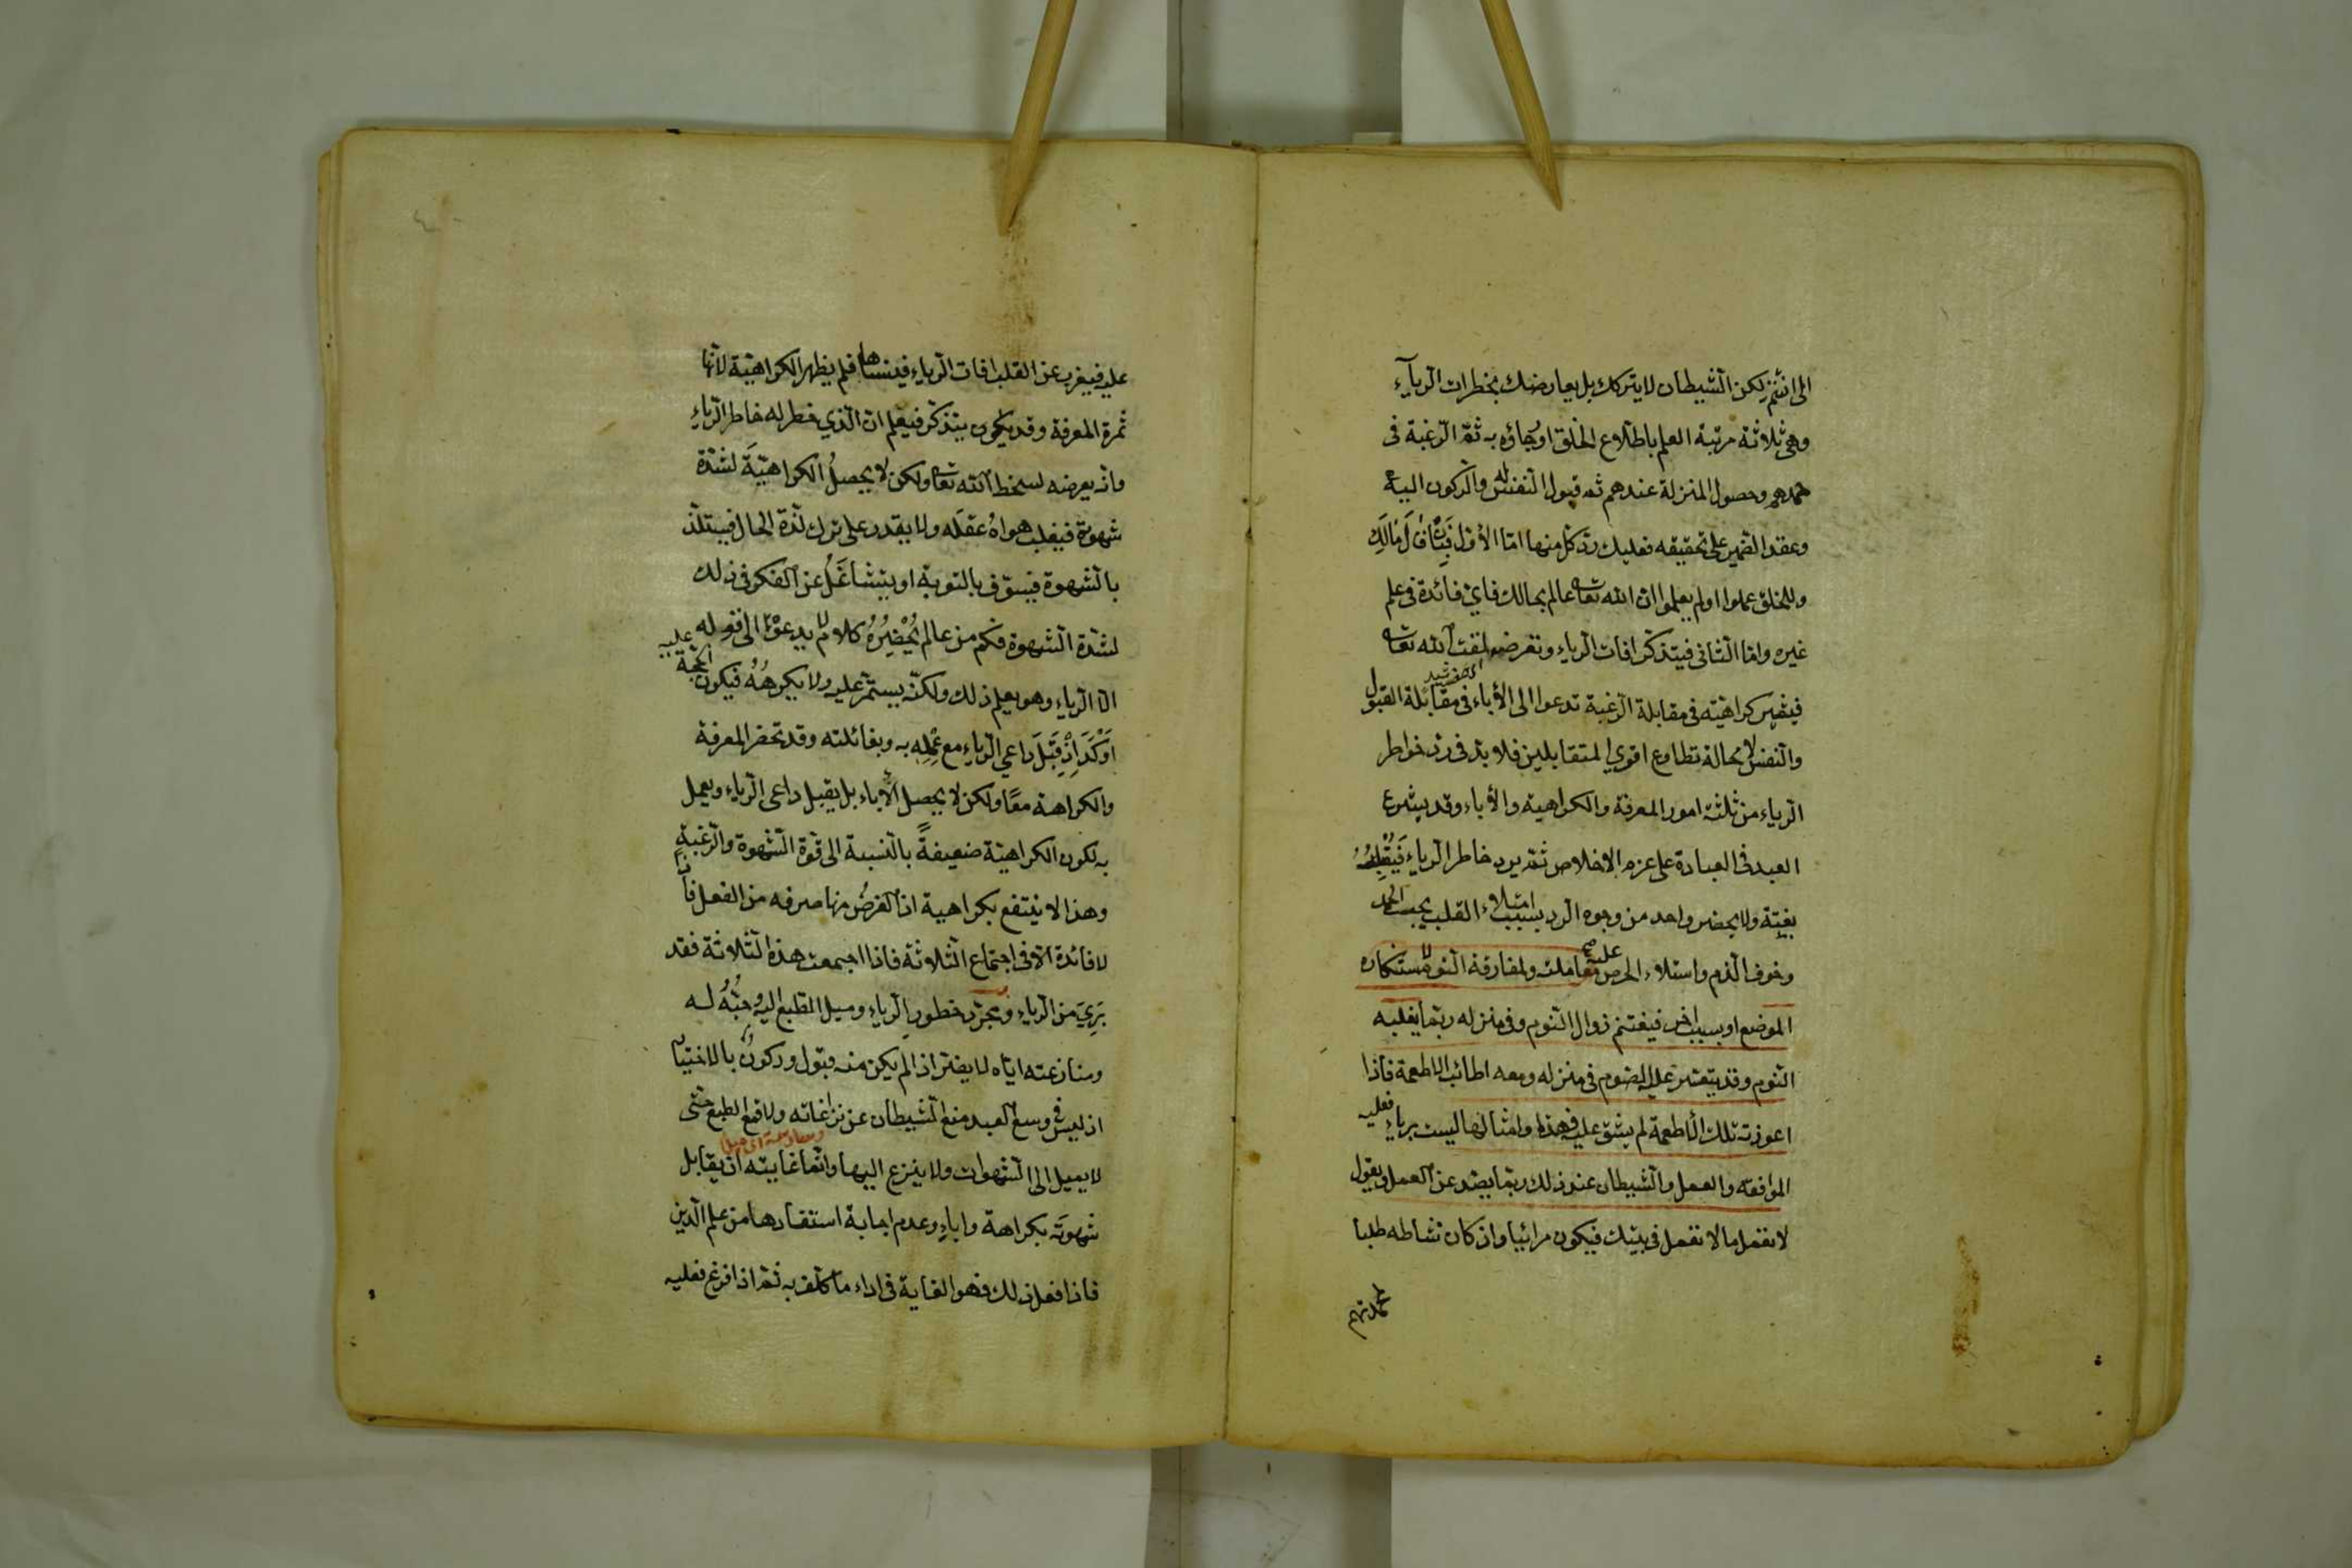 الى انثم لكن الشيطان لا يتركك بل يعارضك بخطرات الرياء
وهى ثلاثة مرتبة العلم باطلاع الخلق او رجاؤه به ثم الرغبة فى
حمدهم وحصول المنزلة عندهم ثم قبول النفس له والركون اليه
وعقد الضمير على تحقيقه فعليك رد كل منها اما الاول فبان قال مالك
وللخلق علموا او لم يعلموا ان الله تعا عالم بحالك فاى فائدة فى علم
غيره واما الثانى فيتذكر افات الرياء وتعرضه لمقت الله تعا
فيثمر كراهيته فى مقابلة الرغبة تدعوا الى الأباء فى مقابلة القبول
والنفس لا محالة تطاوع اقوى المتقابلين فلا بد فى رد خواطر
الرياء من ثلثة امور المعرفة والكراهية والأباء وقد يشرع
العبد فى العبادة على عزم الاخلاص ثم يرد خاطر الرياء فيقبله
بغتة ولا يحضر واحد من وجوه الرد بسبب امتلاء القلب بحب الحمد
وخوف الذم واستلاء الحرص عليه معاملته ولمفارقة النوم لاستنكاره
الموضع او بسبب اخر فيغتنم زوال النوم وفى منزله ربما يغلبه
النوم وقد يتعسر عليه الصوم فى منزله ومعه اطائب الاطعمة فاذا
اعوزته تلك الأطعمة لم يشق عليه فهذا وامثالها ليست برياء فعليه
الموافقه والعمل والشيطان عند ذلك ربما يصد عن العمل ويقول
لا تعمل ما لا تعمل فى بيتك فيكون مرائيا وان كان نشاطه طلبا
لمحمدتهم
عليه فيغرب عن القلب افات الرياء فينساها فلم يظهر الكراهية لأنها
ثمرة المعرفة وقد يكون يتذكر فيعلم ان الذي خطر له خاطر الرياء
وانه يعرضه لسخط الله تعا ولكن لا يحصل الكراهية لشدة
شهوته فيغلب هواه عقله ولا يقدر على ترك لذة الحال فيستلذ
بالشهوة فيسوف بالتوبة او يتشاغل عن الفكر فى ذلك
لشدة الشهوة فكم من عالم يحضره كلام لا يدعو الى قوله
الا الرياء وهو يعلم ذلك ولكنه يستمر عليه ولا يكرهه فيكون الحجة عليه
اوكد اذ قبل داعي الرياء مع علمه به وبغائلته وقد تحضر المعرفة
والكراهة معا ولكن لا يحصل الأباء بل يقبل داعى الرياء ويعمل
به لكون الكراهية ضعيفة بالنسبة الى قوة الشهوة والرغبة
وهذا لا ينتفع بكراهية اذ الغرض منها صرفه من الفعل فاذا
لا فائدة الا فى اجتماع الثلاثة فاذا اجتمعت هذه الثلاثة فقد
برئ من الرياء ومجرد خطور الرياء وميل الطبع اليه وحبه له
ومنازعته اياه لا يضر اذا لم يكن منه قبول وركون بالاختيار
اذ ليس فى وسع العبد منع الشيطان عن نزاغاته ولا قمع الطبع حتى
لا يميل الى الشهوات ولا ينزع اليها وانما غايته ان يقابل
شهوته بكراهة واباء وعدم اجابة استفادها من علم الدين
فاذا فعل ذلك فهو الغاية فى اداء ما كلف به ثم اذا فرغ فعليه